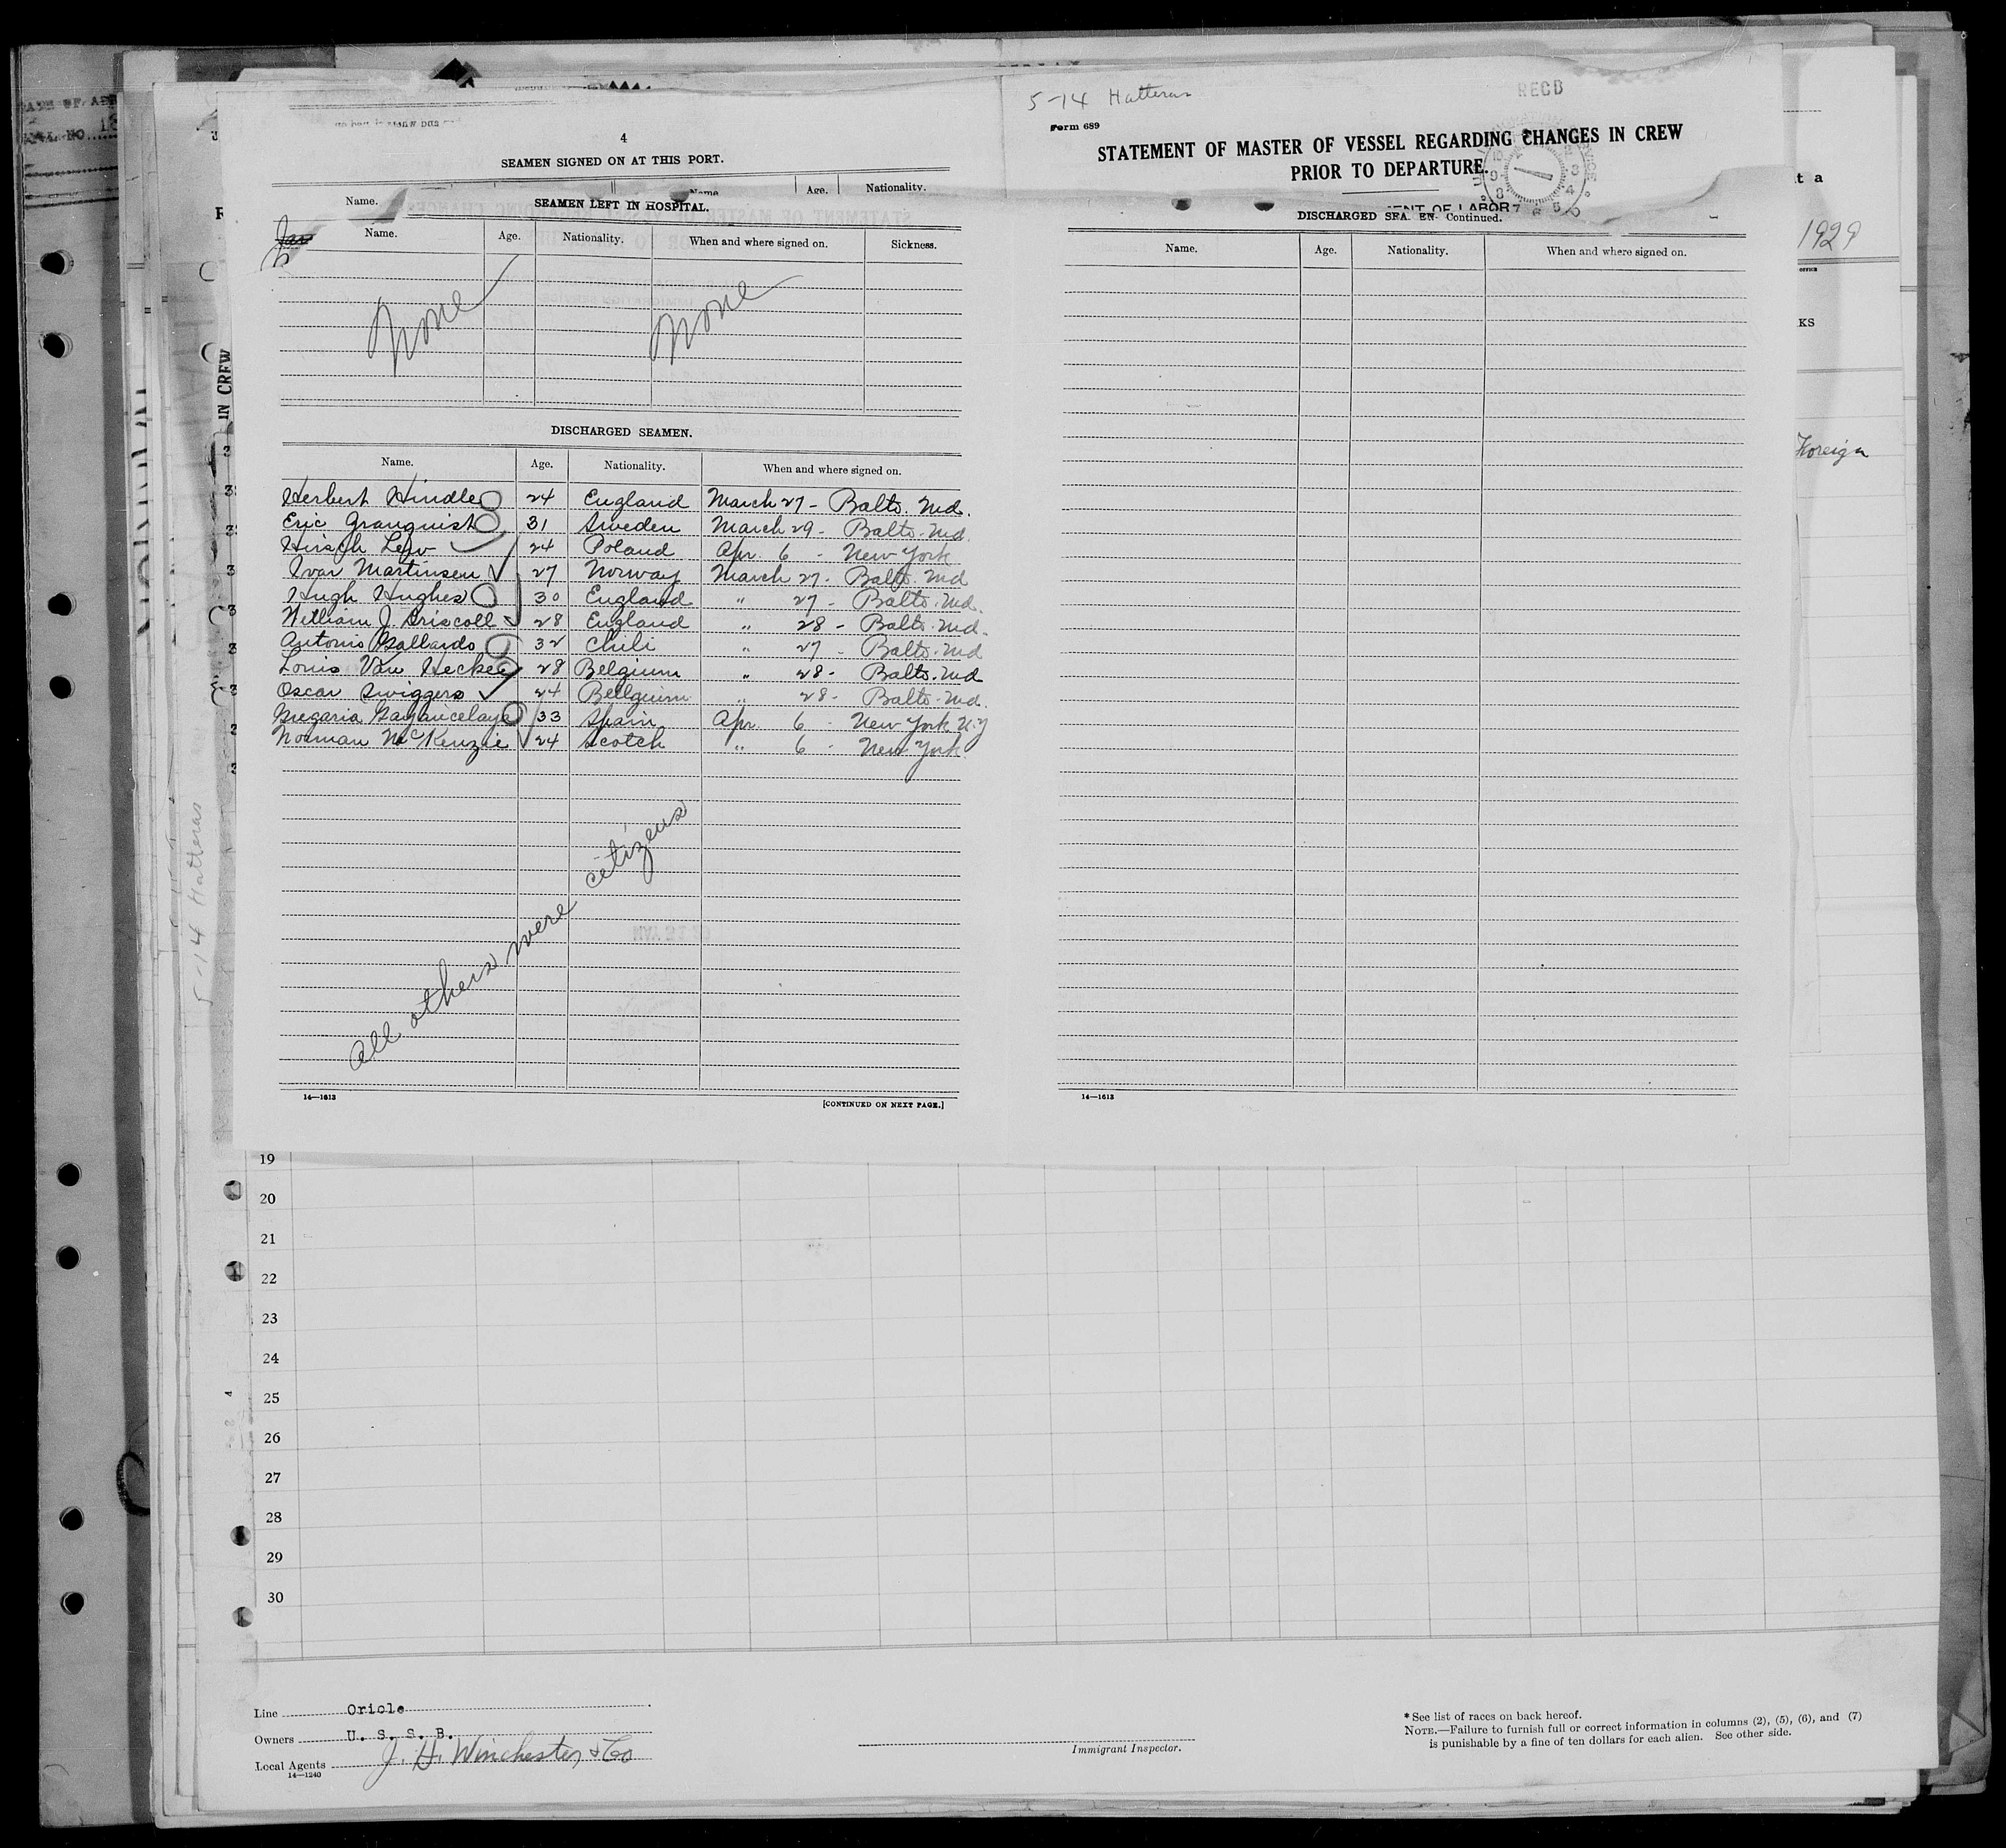 5-14 Hatteras
RECD
Form 689
STATEMENT OF MASTER OF VESSEL REGARDING CHANGES IN CREW
PRIOR TO DEPARTURE.
4
SEAMEN SIGNED ON AT THIS PORT.
Name. Name Age. Nationality.
SEAMEN LEFT IN HOSPITAL.
Name. Age. Nationality. When and where signed on. Sickness.
None None
DISCHARGED SEAMEN.
Name. Age. Nationality. When and where signed on.
Herbert Hindle 24 England March 27 - Balto. Md.
Eric Granquist 31 Sweden March 29 - Balto. Md.
Hirsch Lew 24 Poland Apr. 6 - New York
Ivar Martinsen 27 Norway March 27 - Balto. Md
Hugh Hughes 30 England " 27 - Balto. Md.
William J. Driscoll 28 England " 28 - Balto. Md.
Antonio Gallardo 32 Chili " 27 - Balto. Md
Louis Van Heckee 28 Belgium " 28 - Balto. Md
Oscar Swiggers 24 Bellgium " 28 - Balto. Md.
33 Spain Apr. 6 - New York N.Y
Norman McKenzie 24 Scotch " 6 - New York
All others were citizens
14—1613
[CONTINUED ON NEXT PAGE.]
ENT OF LABOR
DISCHARGED SEA EN- Continued.
Name. Age. Nationality. When and where signed on.
14—1613
t a
1929
OFFICE
KS
Foreign
IN CREW
5-14 Hatteras
19
20
21
22
23
24
25
26
27
28
29
30
Line Oriole
Owners U. S. S. B.
Local Agents J. H. Winchester & Co
14—1240
Immigrant Inspector.
* See list of races on back hereof.
NOTE.—Failure to furnish full or correct information in columns (2), (5), (6), and (7)
is punishable by a fine of ten dollars for each alien. See other side.